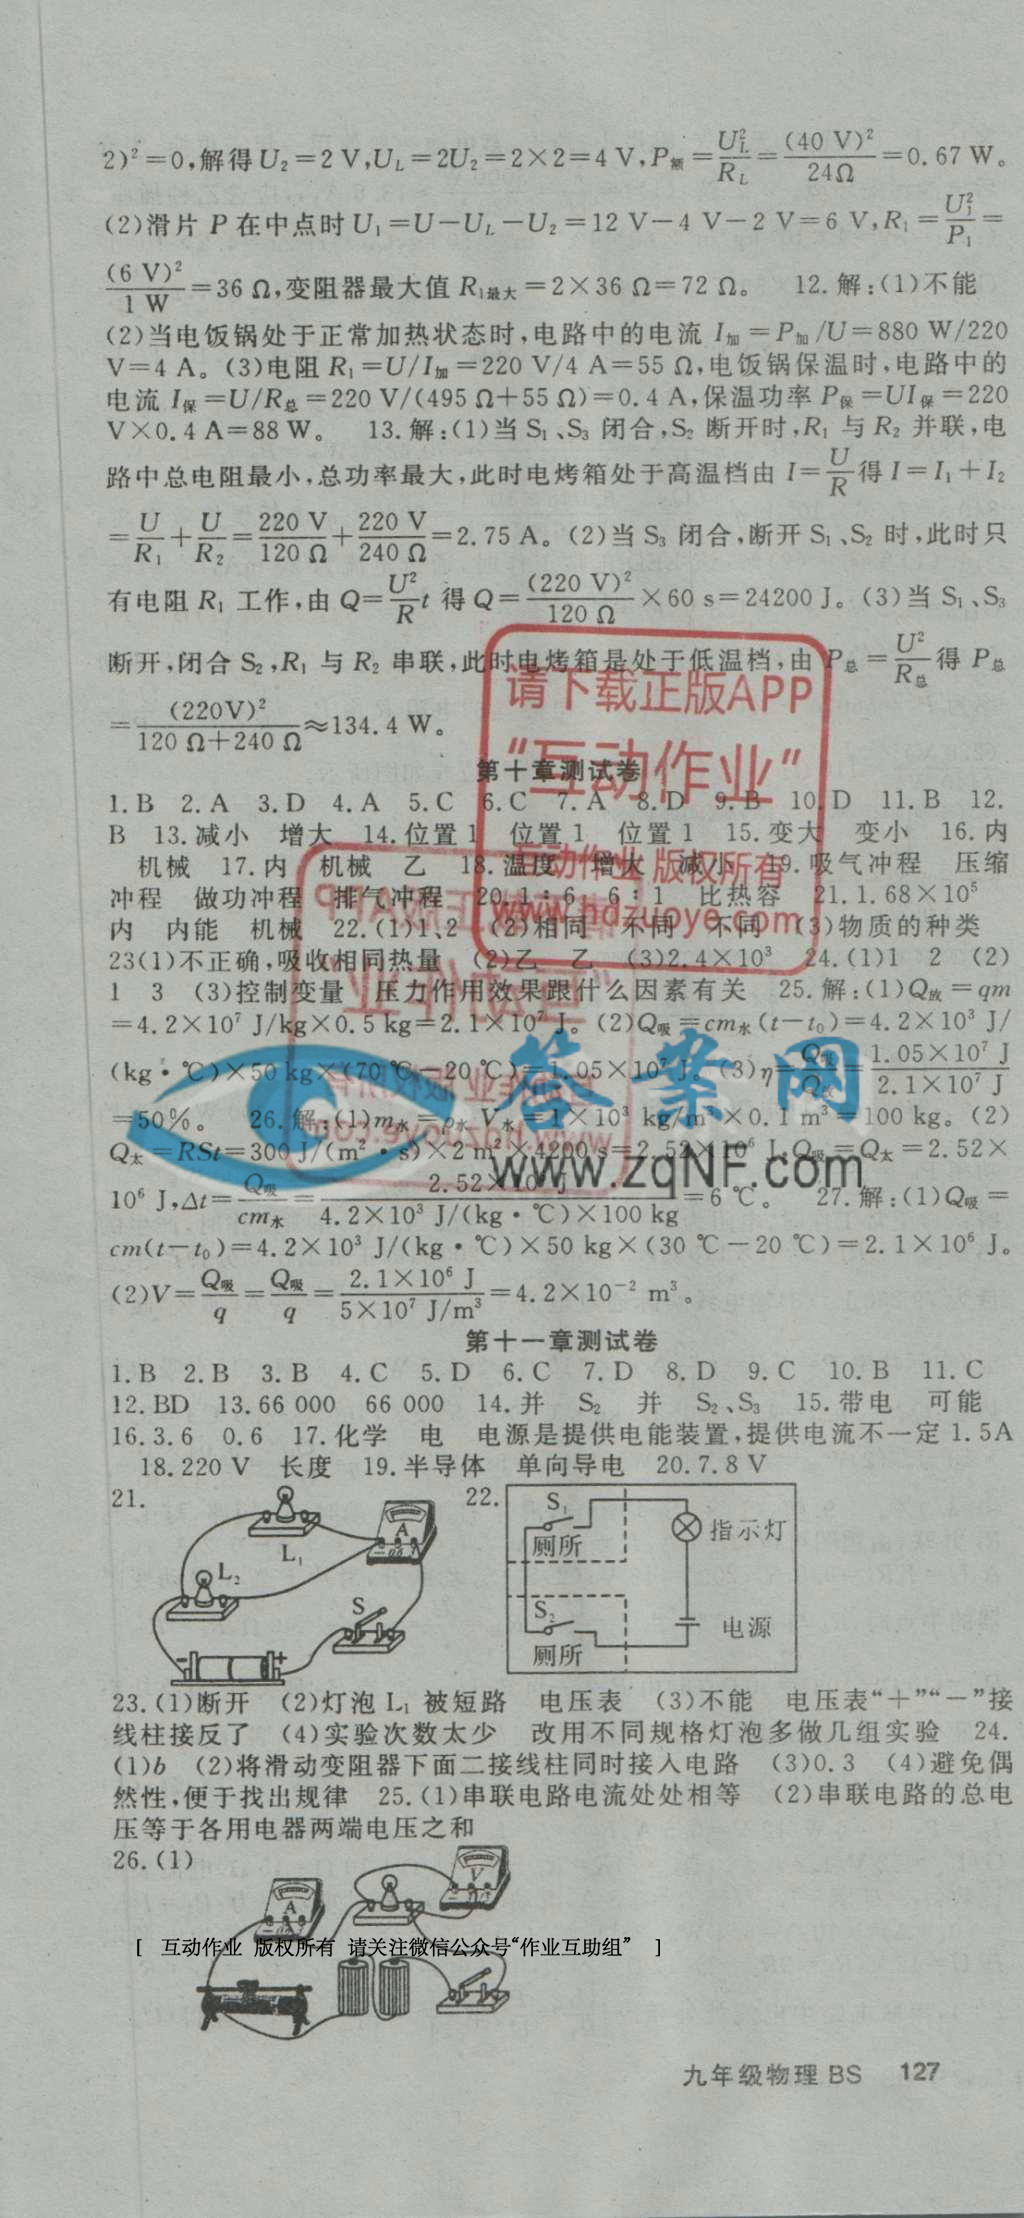 2)²=0,解得U₂=2 V,U_L=2U₂=2×2=4 V,P额=U_L²/R_L=(40 V)²/24Ω=0.67 W。
(2)滑片 P 在中点时U₁=U-U_L-U₂=12 V-4 V-2 V=6 V,R₁=U₁²/P₁=
(6 V)²/1 W=36 Ω,变阻器最大值R₁最大=2×36 Ω=72 Ω。 12.解:(1)不能
(2)当电饭锅处于正常加热状态时,电路中的电流 I加=P加/U=880 W/220
V=4 A。(3)电阻R₁=U/I加=220 V/4 A=55 Ω,电饭锅保温时,电路中的
电流 I保=U/R总=220 V/(495 Ω+55 Ω)=0.4 A,保温功率 P保=UI保=220
V×0.4 A=88 W。 13.解:(1)当S₁、S₃ 闭合,S₂ 断开时,R₁ 与 R₂ 并联,电
路中总电阻最小,总功率最大,此时电烤箱处于高温档由 I=U/R得I=I₁+I₂
=U/R₁+U/R₂=220 V/120 Ω+220 V/240 Ω=2.75 A。(2)当S₃ 闭合,断开S₁、S₂ 时,此时只
有电阻 R₁ 工作,由 Q=U²/R t 得Q=(220 V)²/120 Ω×60 s=24200 J。(3)当 S₁、S₃
断开,闭合S₂,R₁ 与 R₂ 串联,此时电烤箱是处于低温档,由 P总=U²/R总得 P总
=(220V)²/120 Ω+240 Ω≈134.4 W。
请下载正版APP
“互动作业“
第十章测试卷
1.B 2.A 3.D 4.A 5.C 6.C 7.A 8.D 9.B 10.D 11.B 12.
B 13.减小 增大 14.位置1 位置1 位置1 15.变大 变小 16.内
机械 17.内 机械 乙 18.温度 增大 减小 19.吸气冲程 压缩
互动作业 版权所有
冲程 做功冲程 排气冲程 20.1:6 6:1 比热容 21.1.68×10⁵
www.hdzuoye.com
内 内能 机械 22.(1)1、2 (2)相同 不同 不同 (3)物质的种类
23(1)不正确,吸收相同热量 (2)乙 乙 (3)2.4×10³ 24.(1)1 2 (2)
1 3 (3)控制变量 压力作用效果跟什么因素有关 25.解:(1)Q放=qm
=4.2×10⁷ J/kg×0.5 kg=2.1×10⁷ J。(2)Q吸=cm水(t-t₀)=4.2×10³ J/
(kg·℃)×50 kg×(70 ℃-20 ℃)=1.05×10⁷ J。(3)η=Q吸/Q放=1.05×10⁷ J/2.1×10⁷ J
答案网
=50%。 26.解:(1)m水=ρ水V水=1×10³ kg/m³×0.1 m³=100 kg。(2)
Q太=RSt=300 J/(m²·s)×2 m²×4200 s=2.52×10⁶ J,Q吸=Q太=2.52×
www.zqNF.com
10⁶ J,Δt=Q吸/cm水=2.52×10⁶ J/4.2×10³ J/(kg·℃)×100 kg=6 ℃。 27.解:(1)Q吸=
cm(t-t₀)=4.2×10³ J/(kg·℃)×50 kg×(30 ℃-20 ℃)=2.1×10⁶ J。
(2)V=Q吸/q=Q吸/q=2.1×10⁶ J/5×10⁷ J/m³=4.2×10⁻² m³。
第十一章测试卷
1.B 2.B 3.B 4.C 5.D 6.C 7.D 8.D 9.C 10.B 11.C
12.BD 13.66 000 66 000 14.并 S₂ 并 S₂、S₃ 15.带电 可能
16.3.6 0.6 17.化学 电 电源是提供电能装置,提供电流不一定 1.5A
18.220 V 长度 19.半导体 单向导电 20.7.8 V
21.
L₁
L₂
A
S
22.
S₁
厕所
指示灯
S₂
厕所
电源
23.(1)断开 (2)灯泡 L₁ 被短路 电压表 (3)不能 电压表“+”“-”接
线柱接反了 (4)实验次数太少 改用不同规格灯泡多做几组实验 24.
(1)b (2)将滑动变阻器下面二接线柱同时接入电路 (3)0.3 (4)避免偶
然性,便于找出规律 25.(1)串联电路电流处处相等 (2)串联电路的总电
压等于各用电器两端电压之和
26.(1)
A
V
[ 互动作业 版权所有 请关注微信公众号“作业互助组” ]
九年级物理 BS 127